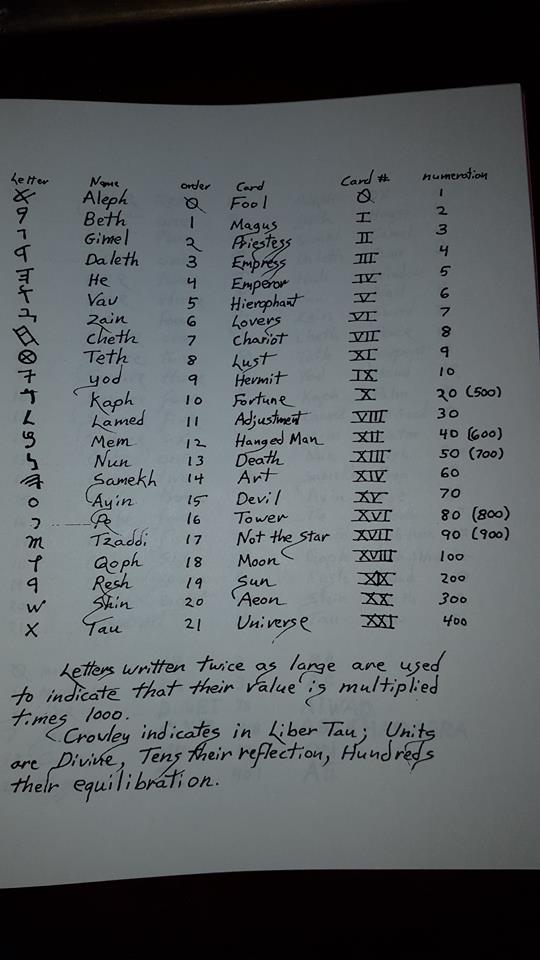 Letter Name order Card Card # numeration
𐤀 Aleph 0 Fool 0 1
𐤁 Beth 1 Magus I 2
𐤂 Gimel 2 Priestess II 3
𐤃 Daleth 3 Empress III 4
𐤄 He 4 Emperor IV 5
𐤅 Vau 5 Hierophant V 6
Zain 6 Lovers VI 7
Cheth 7 Chariot VII 8
⊗ Teth 8 Lust XI 9
Yod 9 Hermit IX 10
Kaph 10 Fortune X 20 (500)
Lamed 11 Adjustment VIII 30
Mem 12 Hanged Man XII 40 (600)
Nun 13 Death XIII 50 (700)
Samekh 14 Art XIV 60
O Ayin 15 Devil XV 70
Pe 16 Tower XVI 80 (800)
Tzaddi 17 Not the Star XVII 90 (900)
Qoph 18 Moon XVIII 100
Resh 19 Sun XIX 200
W Shin 20 Aeon XX 300
X Tau 21 Universe XXI 400
Letters written twice as large are used
to indicate that their value is multiplied
times 1000.
Crowley indicates in Liber Tau; Units
are Divine, Tens their reflection, Hundreds
their equilibration.